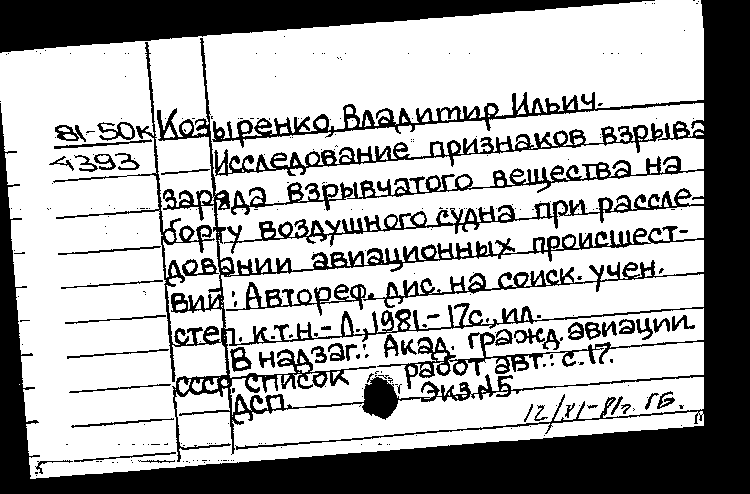 81-50к
4393
Козыренко, Владимир Ильич.
Исследование признаков взрыва
заряда взрывчатого вещества на
борту воздушного судна при рассле-
довании авиационных происшест-
вий: Автореф. дис. на соиск. учен.
степ. к.т.н. - Л., 1981. - 17с., ил.
В надзаг.: Акад. гражд. авиации
СССР. Список работ авт.: с.17.
ДСП. Экз.№5.
12/XI-81г. ГБ.